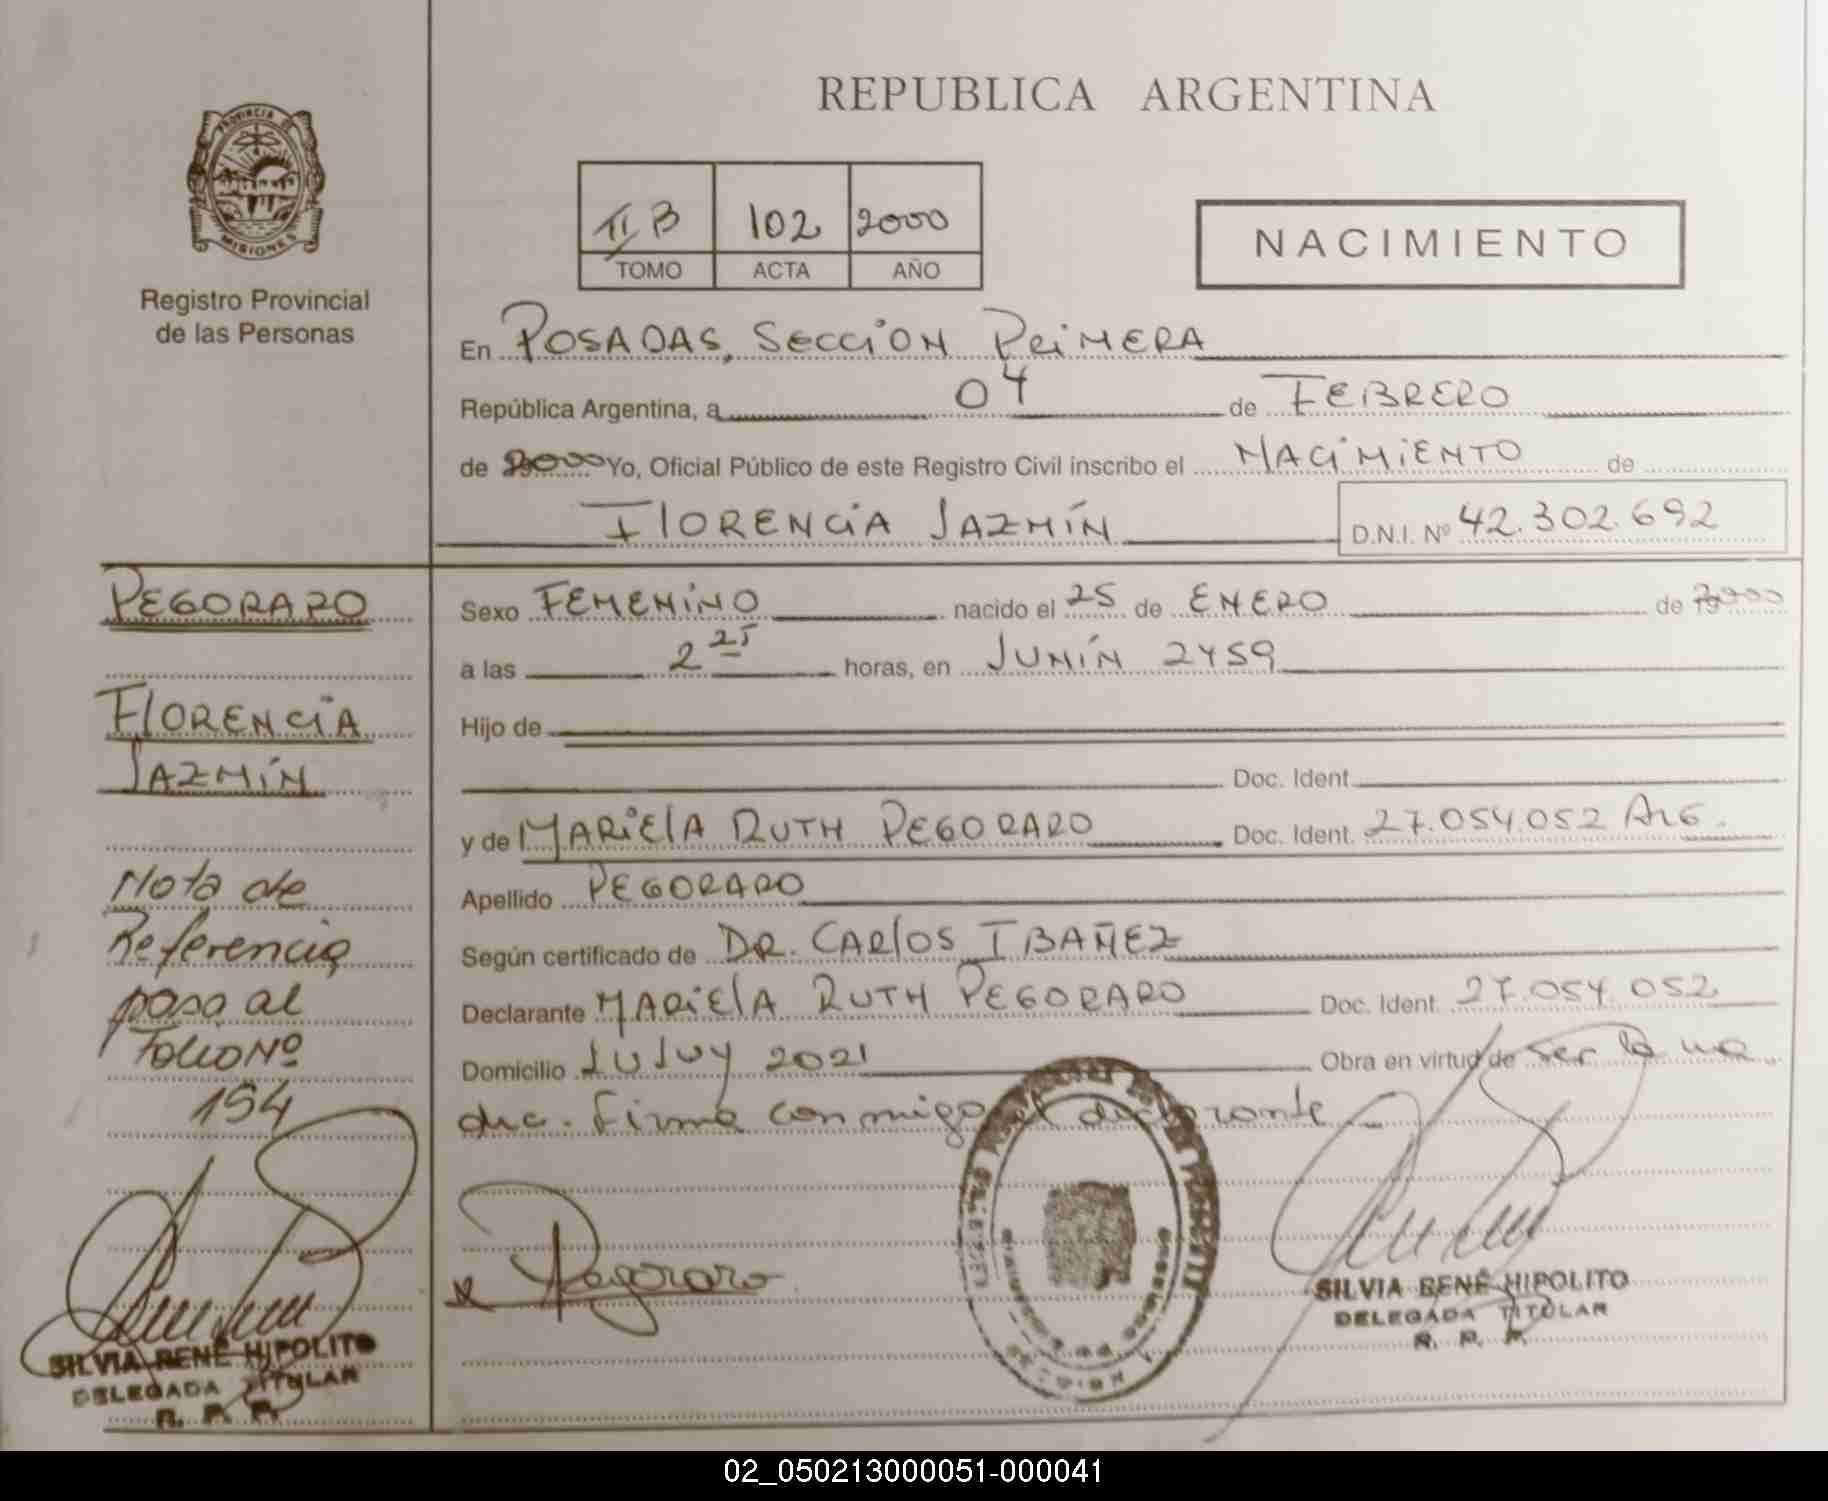 REPUBLICA ARGENTINA
PROVINCIA DE
MISIONES
Registro Provincial
de las Personas
II B 102 2000
TOMO ACTA AÑO
NACIMIENTO
En POSADAS, SECCION PRIMERA
República Argentina, a 04 de FEBRERO
de 2000 Yo, Oficial Público de este Registro Civil inscribo el NACIMIENTO de
FLORENCIA JAZMÍN D.N.I. Nº 42.302.692
PEGORARO
FLORENCIA
JAZMÍN
Nota de
Referencia
pasa al
Folio Nº
194
SILVIA RENÉ HIPOLITO
DELEGADA TITULAR
R. P. P.
Sexo FEMENINO nacido el 25 de ENERO de 2000
a las 2 25 horas, en JUNÍN 2459
Hijo de
Doc. Ident.
y de MARIELA RUTH PEGORARO Doc. Ident. 27.054.052 ARG.
Apellido PEGORARO
Según certificado de DR. CARLOS IBAÑEZ
Declarante MARIELA RUTH PEGORARO Doc. Ident. 27.054.052
Domicilio JUJUY 2021 Obra en virtud de ser la ma
dre. Firma conmigo el declarante
Pegoraro
SILVIA RENÉ HIPOLITO
DELEGADA TITULAR
R. P. P.
02_050213000051-000041